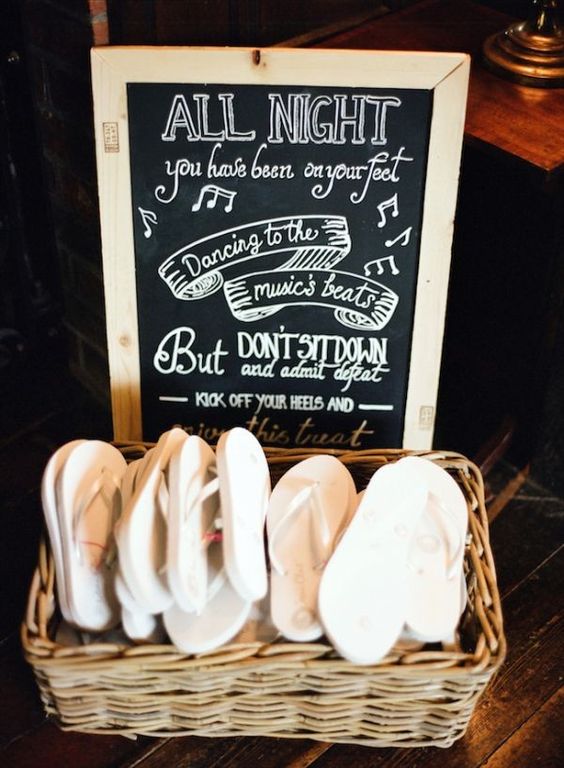 ALL NIGHT
you have been on your feet
Dancing to the
music's beats
But DON'T SIT DOWN
and admit defeat
KICK OFF YOUR HEELS AND
enjoy this treat